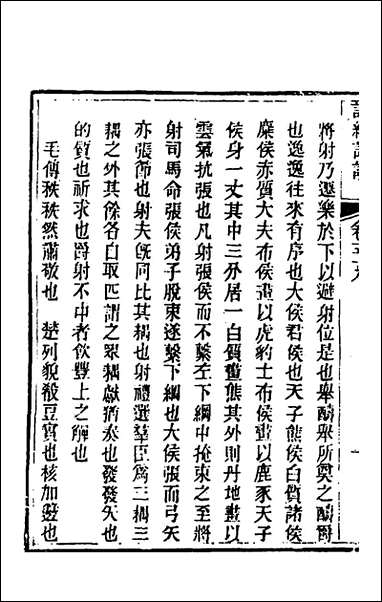 將射乃遷樂於下以避射位是也舉醻舉所奠之醻爵
也逸逸往來有序也大侯君侯也天子熊侯白質諸侯
麋侯赤質大夫布侯畫以虎豹士布侯畫以鹿豕天子
侯身一丈其中三分居一白質畫熊其外則丹地畫以
雲氣抗張也凡張侯而不繫左下綱中掩束之至將
射司馬命張侯弟子脫束遂繫下綱也大侯張而弓矢
亦張節也射夫旣同比其耦也射禮選羣臣爲三耦三
耦之外其餘各自取匹謂之眾耦獻猶奏也發發矢也
的質也祈求也爵射不中者飲豐上之觶也
毛傳秩秩然肅敬也 楚列貌殽豆實也核加籩也